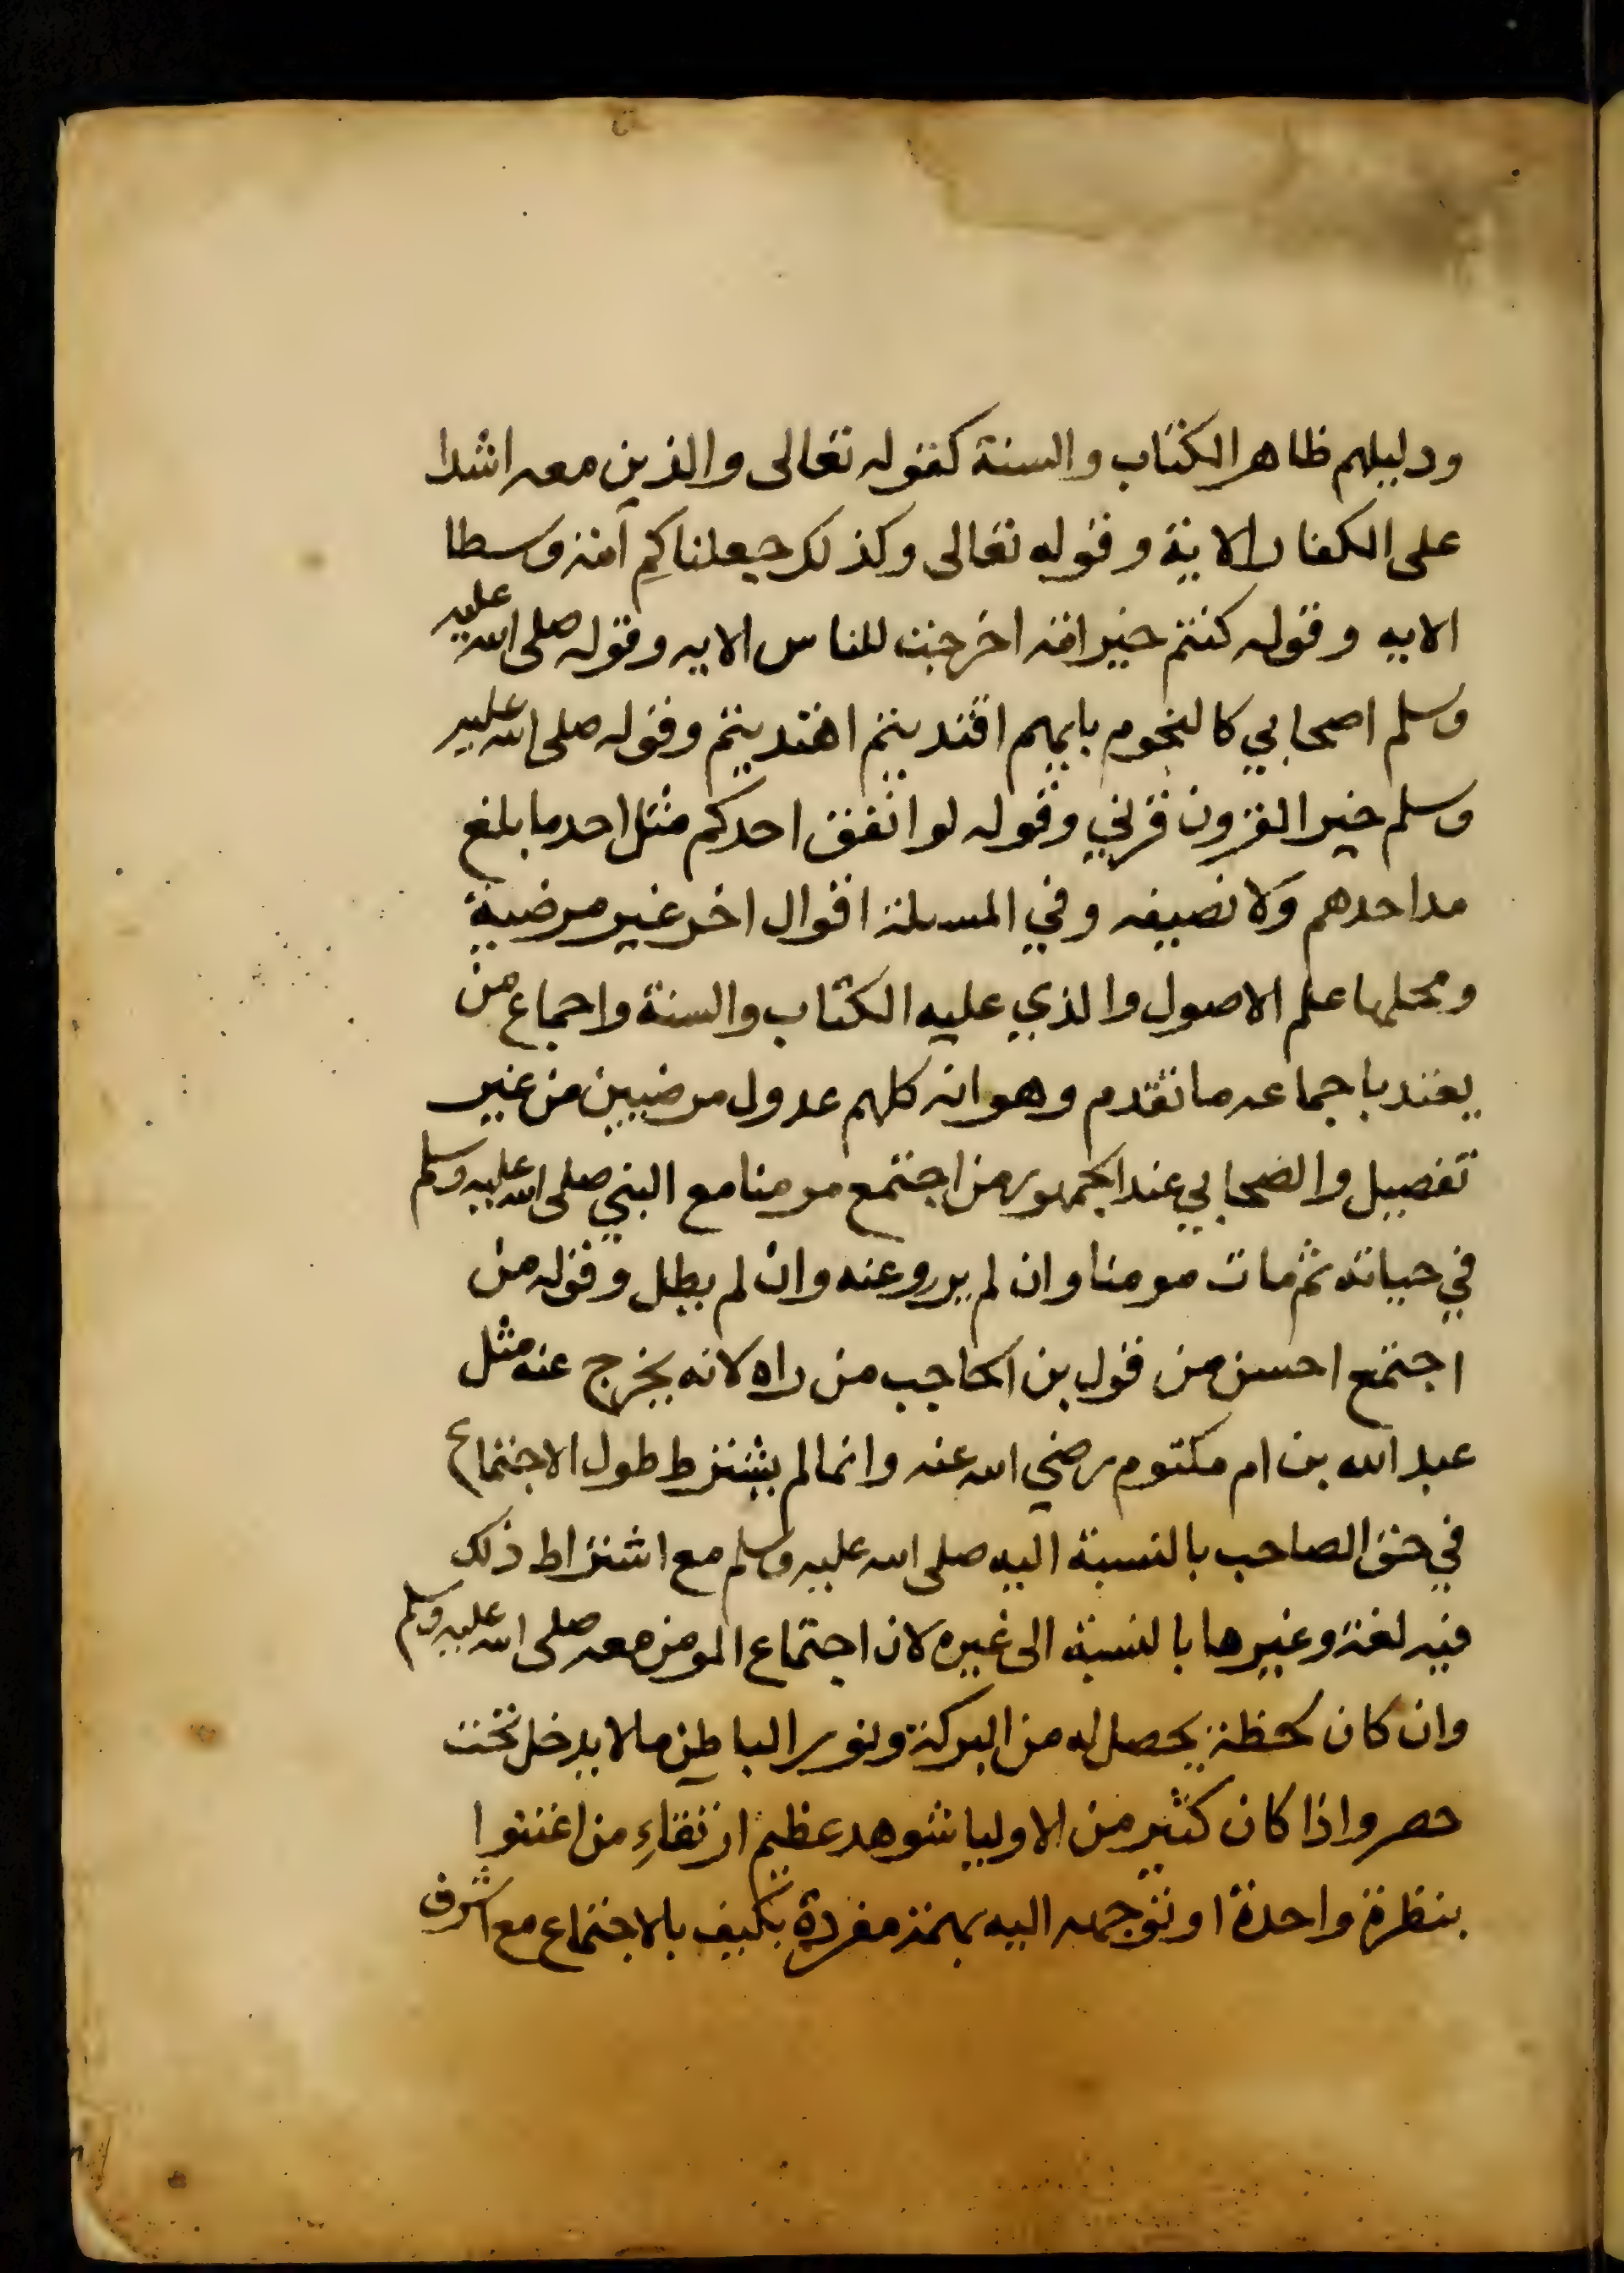 ودليلهم ظاهر الكتاب والسنة كقوله تعالى والذين معه اشدا
على الكفار الاية وقوله تعالى وكذلك جعلناكم امة وسطا
الايه وقوله كنتم خير امة اخرجت للناس الايه وقوله صلى الله عليه
وسلم اصحابي كالنجوم بايهم اقتديتم اهتديتم وقوله صلى الله عليه
وسلم خير القرون قرني وقوله لو انفق احدكم مثل احد ما بلغ
مد احدهم ولا نصيفه وفي المسلة اقوال اخر غير مرضية
ومحلها علم الاصول والذي عليه الكتاب والسنة واجماع من
يعتد باجماعه ما تقدم وهو انه كلهم عدول مرضيين من غير
تفصيل والصحابي عند الجمهور من اجتمع مومنا مع النبي صلى الله عليه وسلم
في حياته ثم مات مومنا وان لم يرو عنه وان لم يطل وقوله من
اجتمع احسن من قول بن الحاجب من راه لانه يخرج عنه مثل
عبد الله بن ام مكتوم رضي الله عنه وانما لم يشترط طول الاجتماع
في حق الصاحب بالنسبة اليه صلى الله عليه وسلم مع اشتراط ذلك
فيه لغة وغيرها بالنسبة الى غيره لان اجتماع المومن معه صلى الله عليه وسلم
وان كان لحظة يحصل له من البركة ونور الباطن ما لا يدخل تحت
حصر واذا كان كثير من الاوليا شوهد عظيم ارتقاءِ من اعتنوا
بنظرة واحدة او توجه اليه بهمة مفردة بكيف بالاجتماع مع اشرف